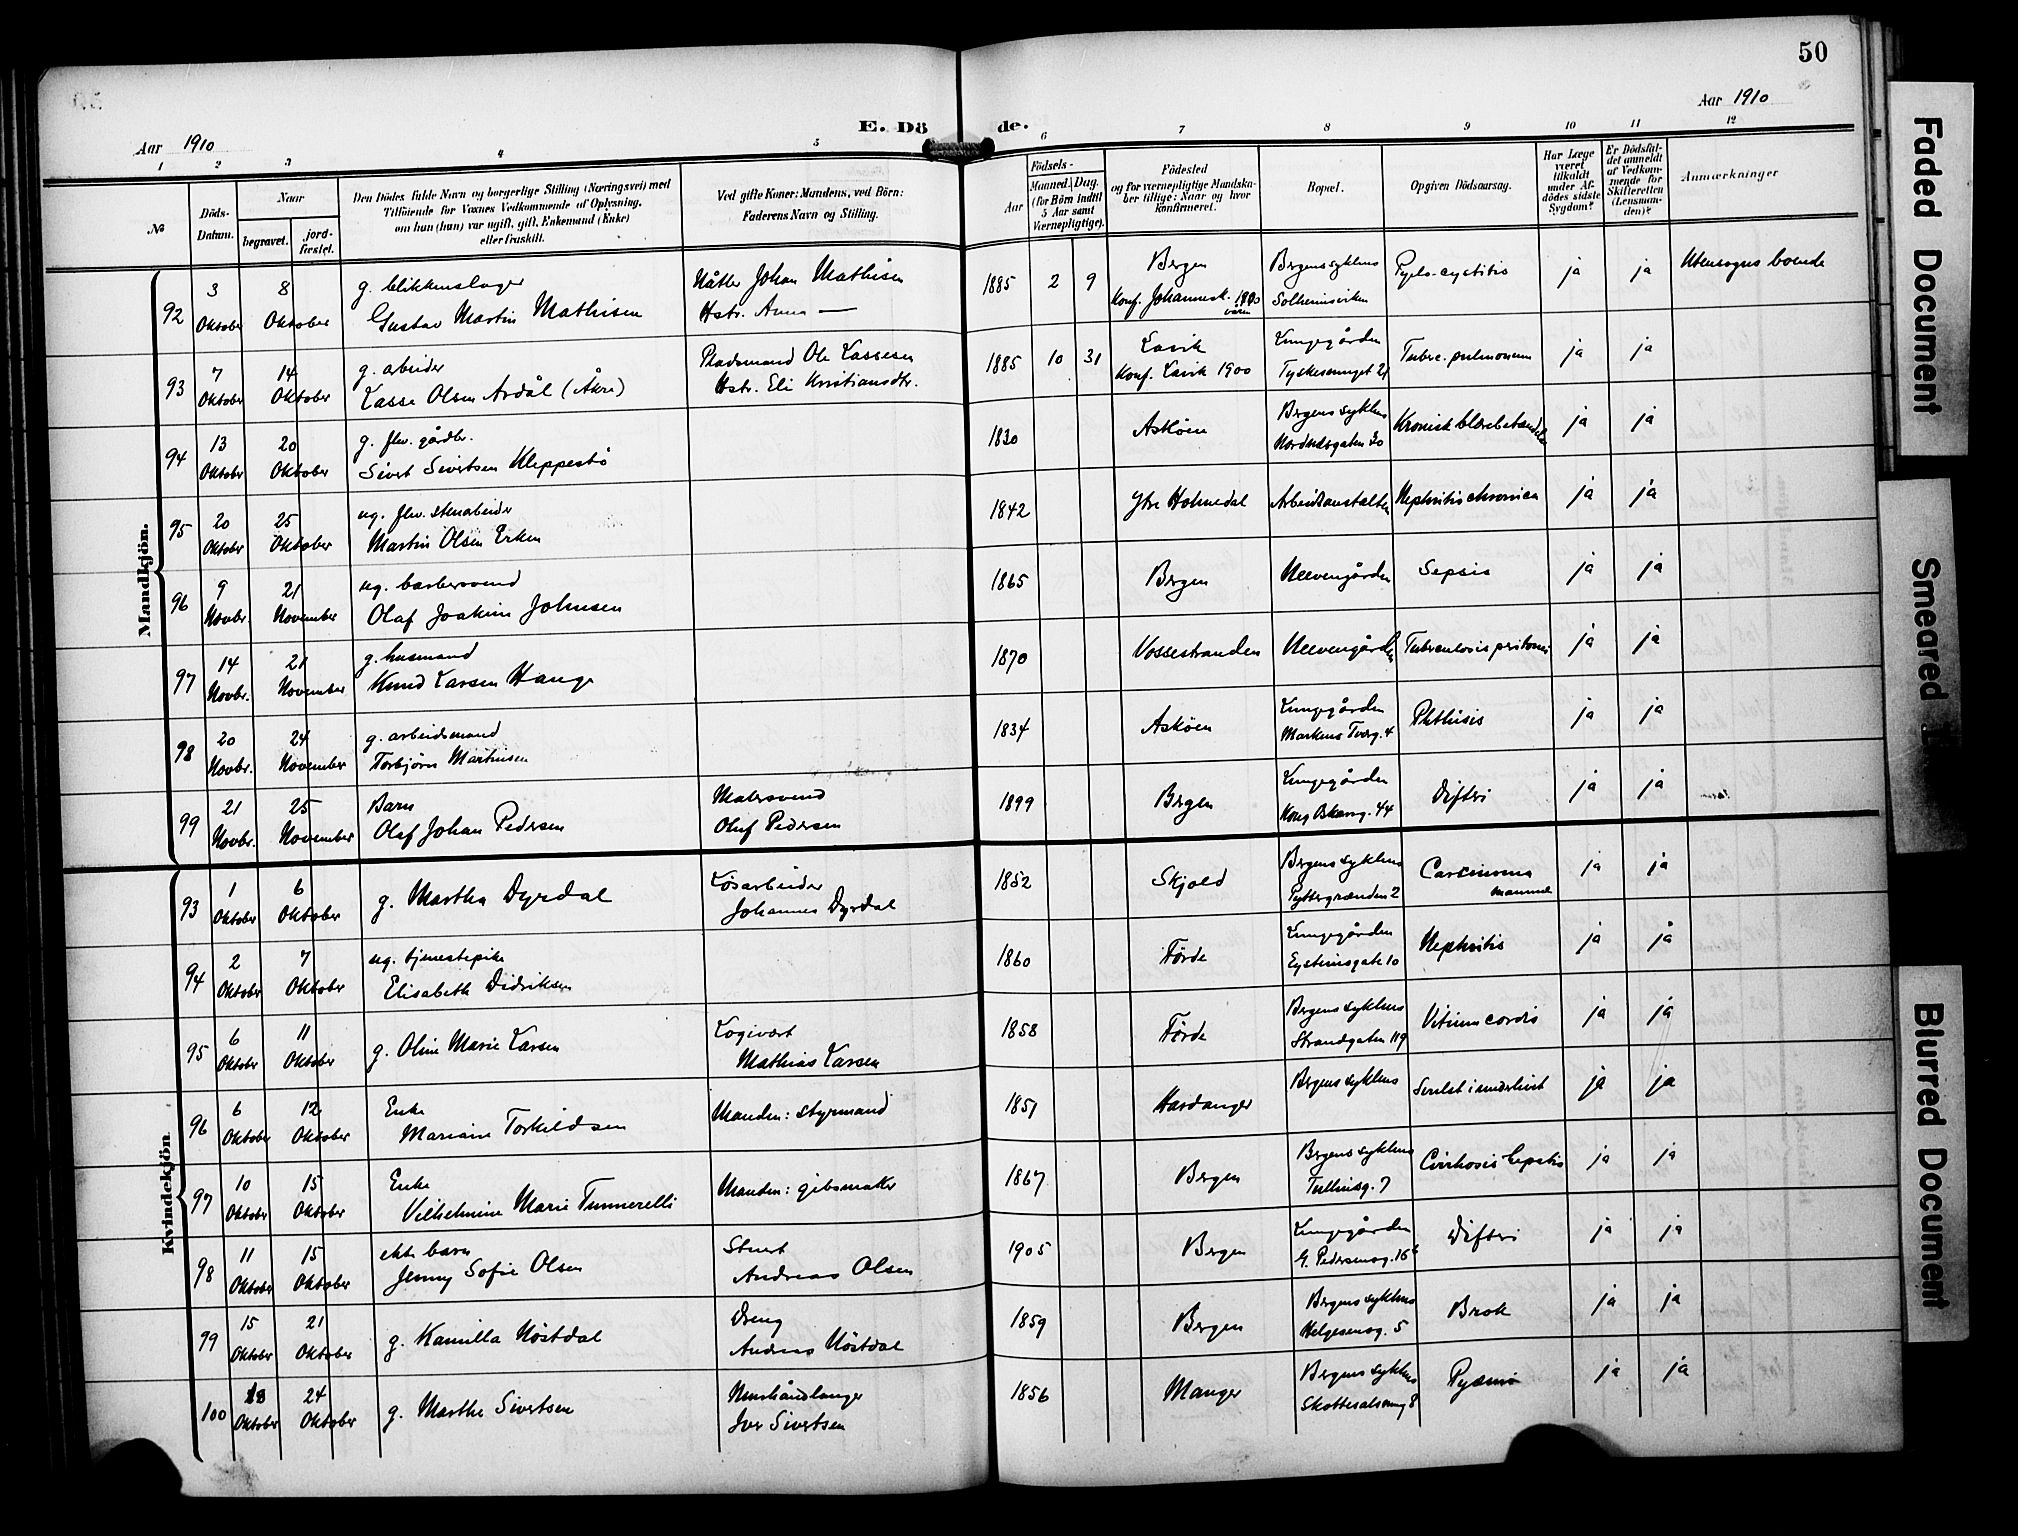 50
Aar 1910
E. Dö de.
Aar 1910
1 2 3 4 5 6 7 8 9 10 11 12
№
Döds-Datum.
Naar
begravet.
jord-fæstet.
Den Dödes fulde Navn og borgerlige Stilling (Næringsvei) med
Tilföiende for Voxnes Vedkommende af Oplysning,
om han (hun) var ugift, gift, Enkemand (Enke)
eller fraskilt.
Ved gifte Koner: Mandens, ved Börn:
Faderens Navn og Stilling.
Födsels-
Aar
Maaned. Dag.
(for Börn indtil
5 Aar samt
Værnepligtige).
Födested
og for værnepligtige Mandska-
ber tillige: Naar og hvor
konfirmeret.
Bopæl.
Opgiven Dödsaarsag.
Har Læge
været
tilkaldt
under Af-
dödes sidste
Sygdom?
Er Dödsfal-
det anmeldt
af Vedkom-
mende for
Skifteretten
(Lensman-
den)?
Anmærkninger
Mandkjön.
92 3 Oktober 8 Oktober g. blikkenslager Gustav Martin Mathisen Johan Mathisen Hstr. Anna — 1885 2 9 Bergen Konf. Johannesk. 1900 Bergens sykhus Solheimsviken Pyelo-cystitis ja ja Utensogns boende
93 7 Oktober 14 Oktober g. arbeider Lasse Olsen Ardål (Åkre) Pladsmand Ole Lassesen Hstr. Eli Kristiansdtr. 1885 10 31 Lavik Konf. Lavik 1900 Lungegården Tyskesmuget 21 Tuberc. pulmonum ja ja
94 13 Oktober 20 Oktober g. fhv. gårdbr. Sivert Sivertsen Kleppestö 1830 Asköen Bergens sykhus Nordnæsgaten 30 Kronisk blærebetændelse ja ja
95 20 Oktober 25 Oktober ug. fhv. stenarbeider Martin Olsen Erken 1842 Ytre Holmedal Arbeidsanstalten Nephritis chronica ja ja
96 9 Novbr. 21 November ug. barbersvend Olaf Joakim Johnsen 1865 Bergen Neevengården Sepsis ja ja
97 14 Novbr. 21 November g. husmand Knud Larsen Hauge 1870 Vossestranden Neevengården Tuberculosis peritonei ja ja
98 20 Novbr. 24 November g. arbeidsmand Torbjörn Martinsen 1834 Asköen Lungegården Markens Tverg. 4 Phthisis ja ja
99 21 Novbr. 25 November Barn Olaf Johan Pedersen Malersvend Oluf Pedersen 1899 Bergen Lungegården Kong Oskarsg. 44 Difteri ja ja
Kvindekjön.
93 1 Oktober 6 Oktober g. Martha Dyrdal Løsarbeider Johannes Dyrdal 1852 Skjold Bergens sykhus Pyttergrænden 2 Carcinoma mammæ ja ja
94 2 Oktober 7 Oktober ug. tjenestepike Elisabeth Didriksen 1860 Förde Lungegården Eysteinsgate 10 Nephritis ja ja
95 6 Oktober 11 Oktober g. Oline Marie Larsen Logivært Mathias Larsen 1858 Förde Bergens sykhus Strandgaten 119 Vitium cordis ja ja
96 6 Oktober 12 Oktober Enke Mariane Torkildsen Manden: styrmand 1851 Hardanger Bergens sykhus Svulst i underlivet ja ja
97 10 Oktober 15 Oktober Enke Vilhelmine Marie Tunnerelli Manden: gibsmaker 1867 Bergen Bergens sykhus Tullinsg. 7 Cirrhosis hepatis ja ja
98 11 Oktober 15 Oktober ekte barn Jenny Sofie Olsen Stuert Andreas Olsen 1905 Bergen Lungegården G. Pedersensg. 16 Difteri ja ja
99 15 Oktober 21 Oktober g. Kamilla Nöstdal Dreng Andreas Nöstdal 1859 Bergen Bergens sykhus Helgesensg. 5 Brok ja ja
100 Oktober 24 Oktober g. Marthe Sivertsen Murhåndlanger Iver Sivertsen 1856 Manger Bergens sykhus Skottesalsmug 8 Pyæmi ja ja
Faded Document
Smeared
Blurred Document